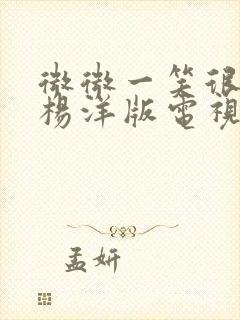 微微一笑很
楊洋版電視
孟妍